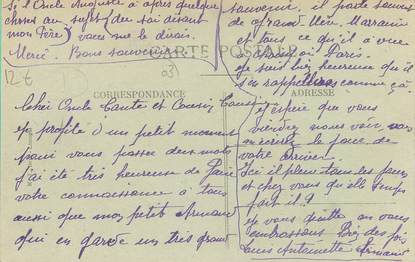 Cher Oncle Tante et Cousin Cousine
je profite d'un petit moment
pour vous passer deux mots
j'ai été très heureuse de faire
votre connaissance à tous
aussi que mon petit Armand
qui en garde un très grand
souvenir. il parle souvent
de grand Mère Marraine
et tous ce qu'il a vu
Paris
je suis bien heureuse qu'il
s'en rappelle comme ça.
j'espère que vous
viendrez nous voir,
écrire le jour de
votre arrivée
Ici il pleut tous les jours
et chez vous quel temps
fait il?
je vous quitte en vous
embrassant Bien des fois
Antoinette Armand
Si l'Oncle Auguste a appris quelque
chose au sujet du soi disant
mon Père vous me le direz.
Merci. Bons souvenirs
CARTE POSTALE
CORRESPONDANCE
ADRESSE
12 €
03